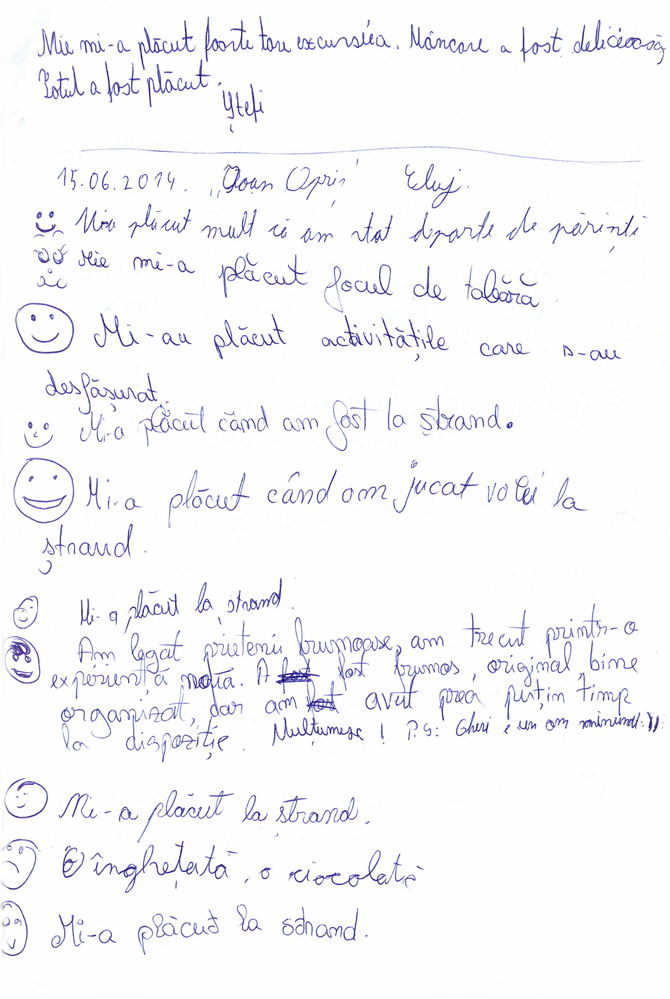 Mie mi-a plăcut foarte tare excursiéa. Mâncare a fost delicioasă,
Totul a fost plăcut.
Ștefi
15.06.2014. „Ioan Opriș” Cluj.
Mia plăcut mult că am stat departe de părinți
Mie mi-a plăcut focul de tabără
Mi-au plăcut activitățile care s-au
desfășurat.
Mi-a plăcut când am fost la ștrand.
Mi-a plăcut când am jucat volei la
ștrand.
Mi-a plăcut la ștrand.
Am legat prietenii frumoase, am trecut printr-o
experiență A fost frumos, original, bine
organizat, dar am avut prea puțin timp
la dispoziție. Mulțumesc! P.S: Gheri e un om minunat:))
Mi-a plăcut la ștrand.
O înghețată, o ciocolată
Mi-a plăcut la ștrand.